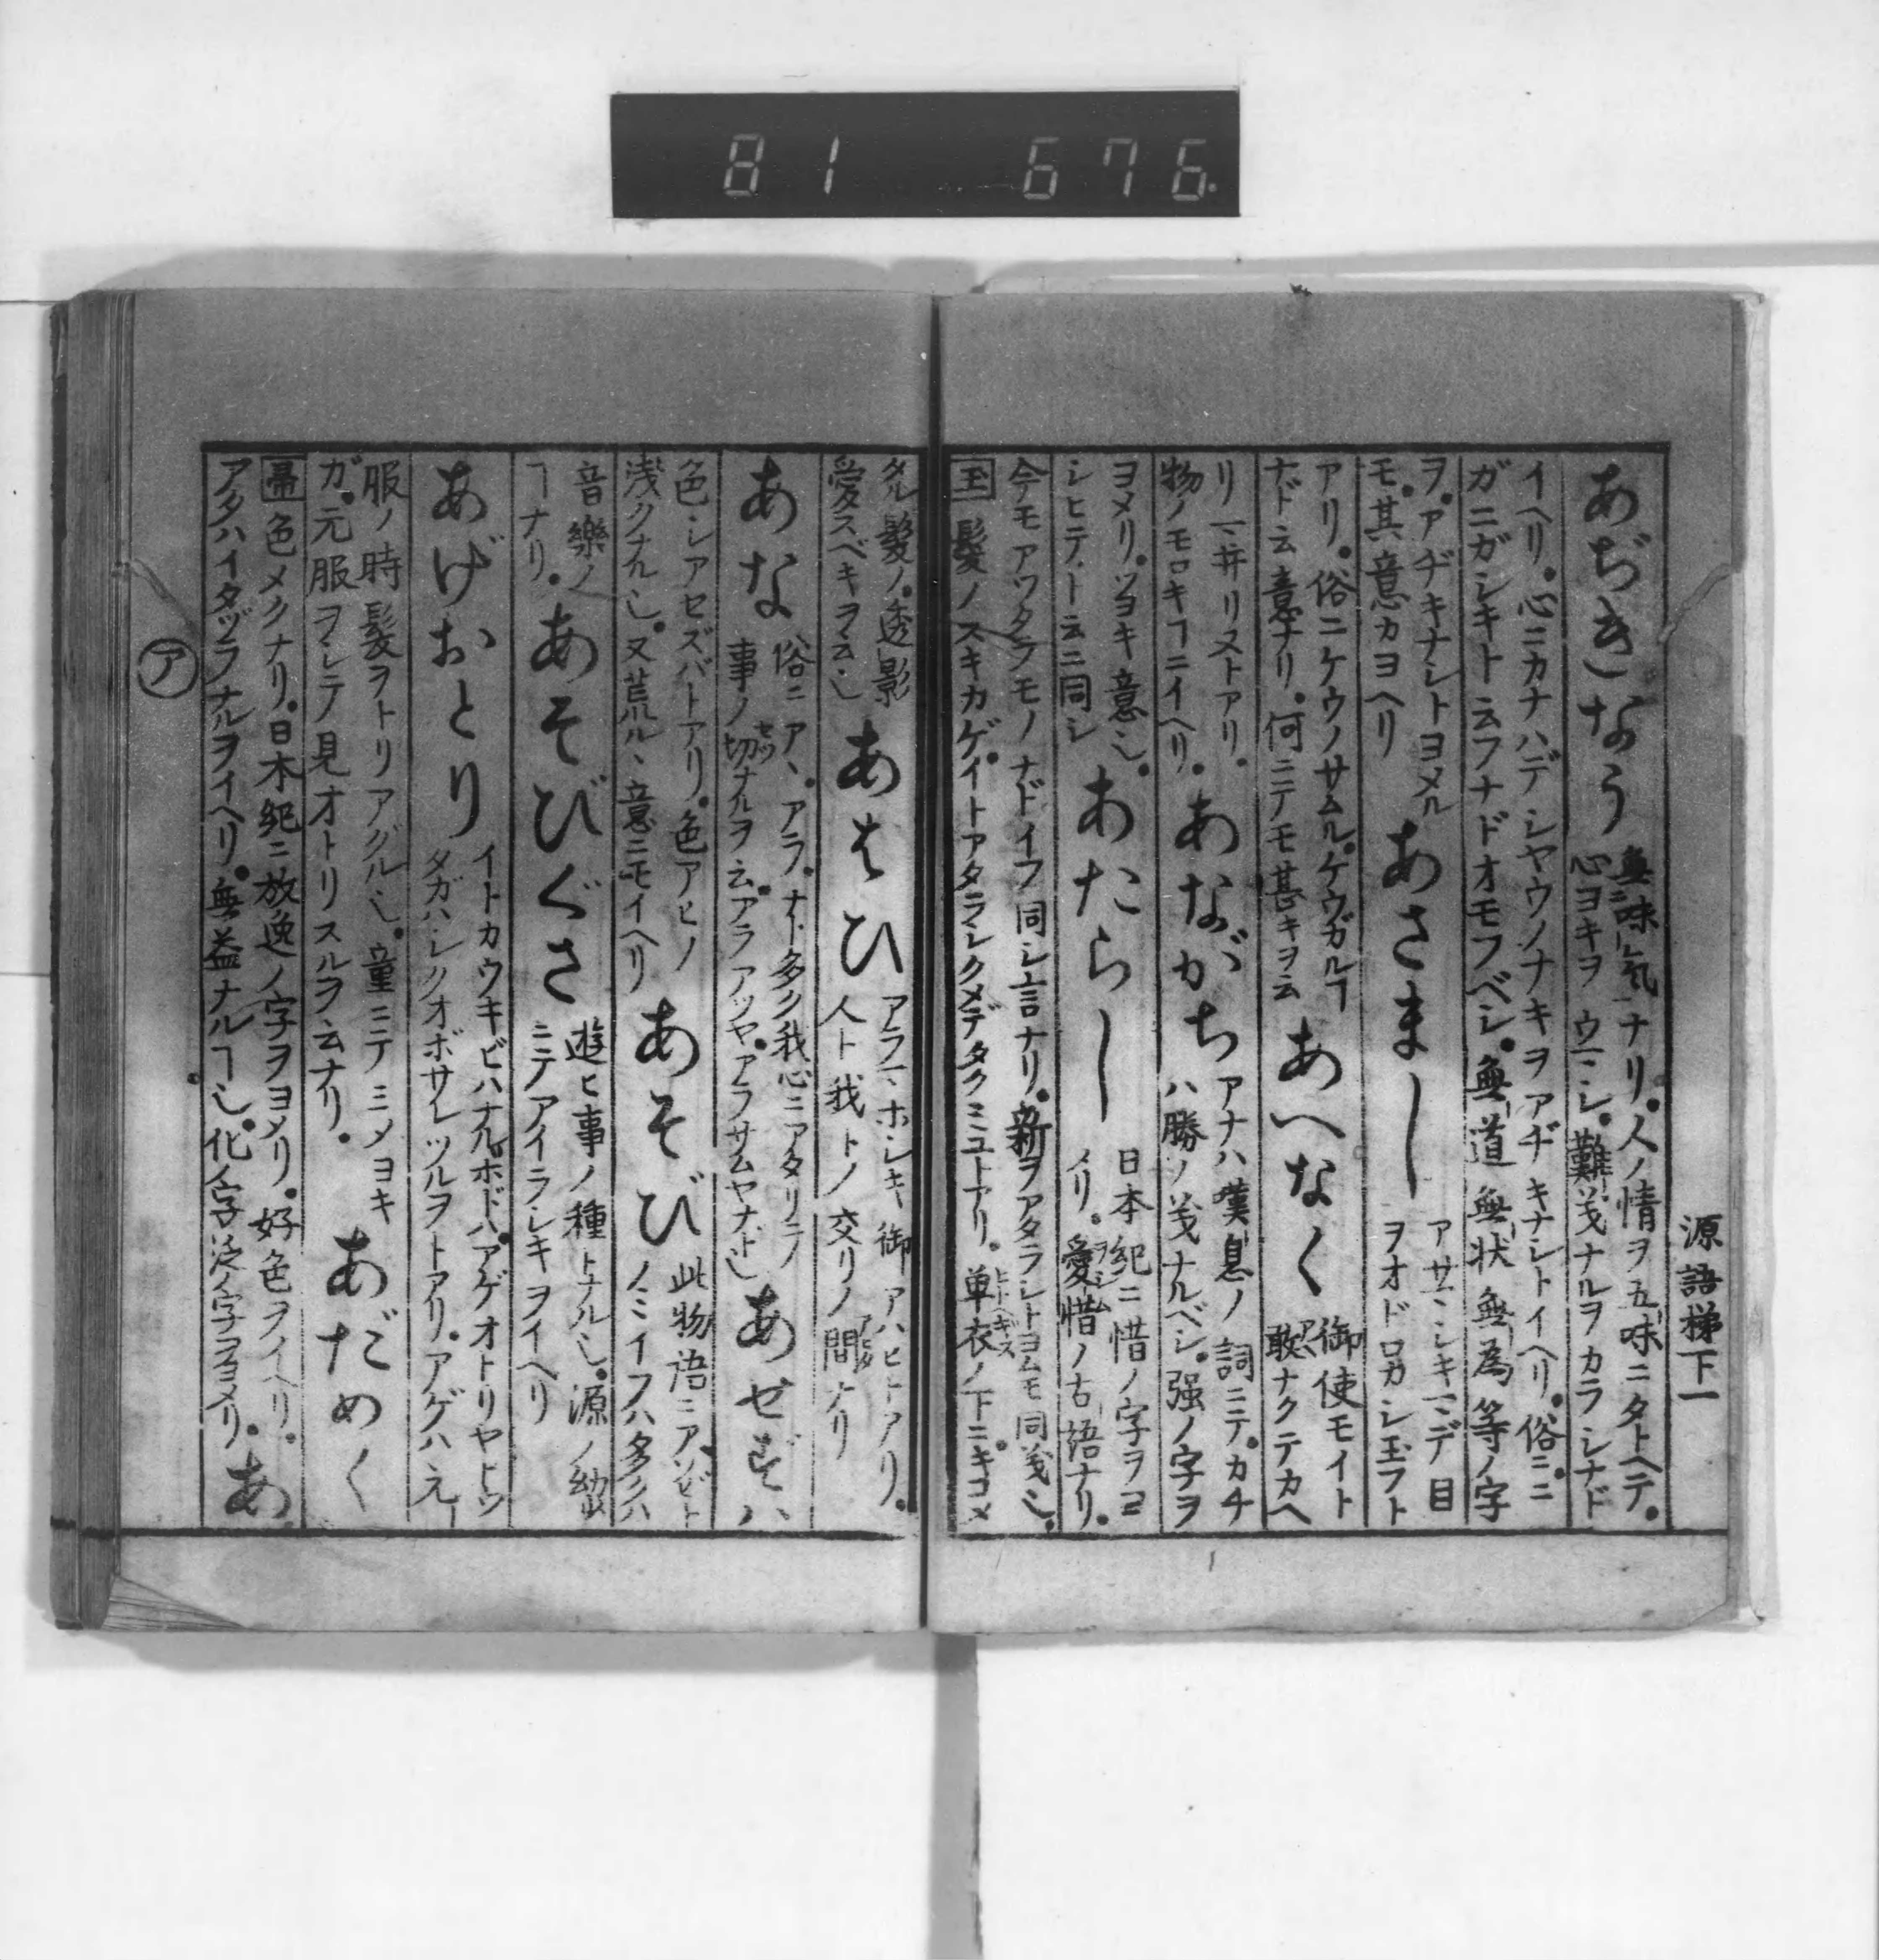 81 676.
源語梯下一
あぢきなう 無味気ナリ。人ノ情ヲ五味ニタトヘテ。
心ヨキヲウマシ。難義ナルヲカラシナド
イヘリ。心ニカナハデシヤウノナキヲアヂキナシトイヘリ。俗ニ。ニ
ガニガシキト云フナドオモフベシ。無道無状無為等ノ字
ヲ。アヂキナシトヨメル
モ。其意カヨヘリ
あさまし
アサマシキマデ目
ヲオドロカシ玉フト
アリ。俗ニケウノサムル。ケウガルヿ
ナド云意ナリ。何ニテモ甚キヲ云
あへなく
御使モイト
敢ナクテカヘ
リマ井リヌトアリ。
物ノモロキヿニイヘリ。
あながち
アナハ嘆息ノ詞ニテ。カチ
ハ勝ノ義ナルベシ。强ノ字ヲ
ヨメリ。ツヨキ意也。
シヒテ。ト云ニ同シ
あたらし
日本紀ニ惜ノ字ヲヨ
メリ。愛惜ノ古語ナリ。
今モアツタラモノナドイフ同シ言ナリ。新ヲアタラシトヨムモ同義也。
玉 髪ノスキカゲ。イトアタラシクメデタクミユトアリ。単衣ノ下ニ。キコメ
タル髪ノ。透影
愛スベキヲ云也
あはひ
アラマホシキ御アハヒトアリ。
人ト我トノ交リノ間ナリ
あな
俗ニアヽ。アラ。ナド多ク我心ニアタリテノ
事ノ切ナルヲ云。アラアツヤ。アラサムヤナド也
あせずハ
色シアセズバトアリ。色アヒノ
浅クナル也。又荒ルヽ意ニモイヘリ
あそび
此物語ニアソビト
ノミイフハ多クハ
音樂ノ
ヿナリ。
あそびぐさ
遊ヒ事ノ種トナル也。源ノ幼
ニテアイラシキヲイヘリ
あげおとり
イトカウキビハナルホドハ。アゲオトリヤトウ
タガハシクオボサレツルヲトアリ。アゲハ元
服ノ時髪ヲトリアグル也。童ニテミメヨキ
ガ。元服ヲシテ見オトリスルヲ云ナリ。
あだめく
帚 色メクナリ。日本紀ニ放逸ノ字ヲヨメリ。好色ヲイヘリ。
アタハイタヅラナルヲイヘリ。無益ナルヿ也。化ノ字泛ノ字ヲヨメリ。
あ
ア